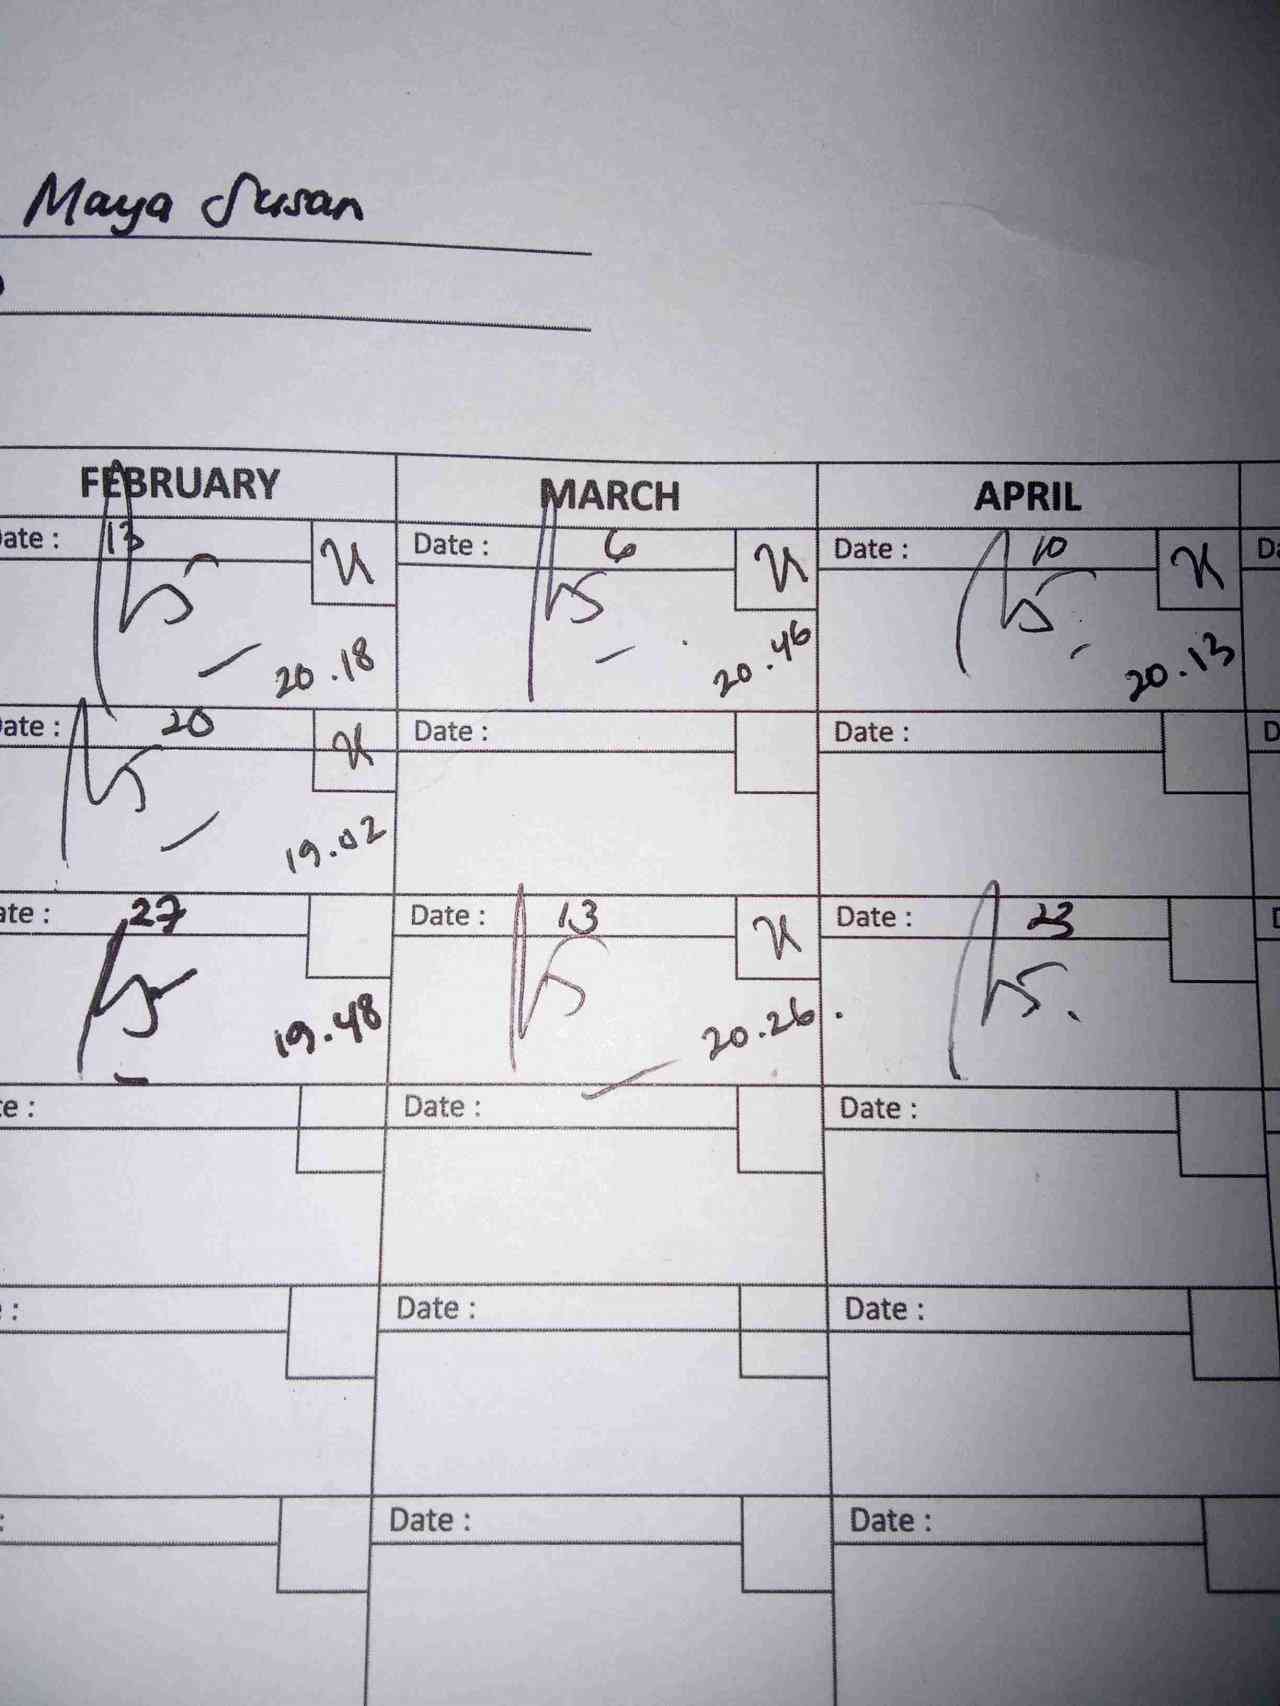 Maya Susan
FEBRUARY MARCH APRIL
ate : 13 Date : 6 Date : 10
20.18 20.46 20.13
ate : 20 Date : Date : D
19.02
ate : 27 Date : 13 Date : 23
19.48 20.26 .
e : Date : Date :
: Date : Date :
: Date : Date :